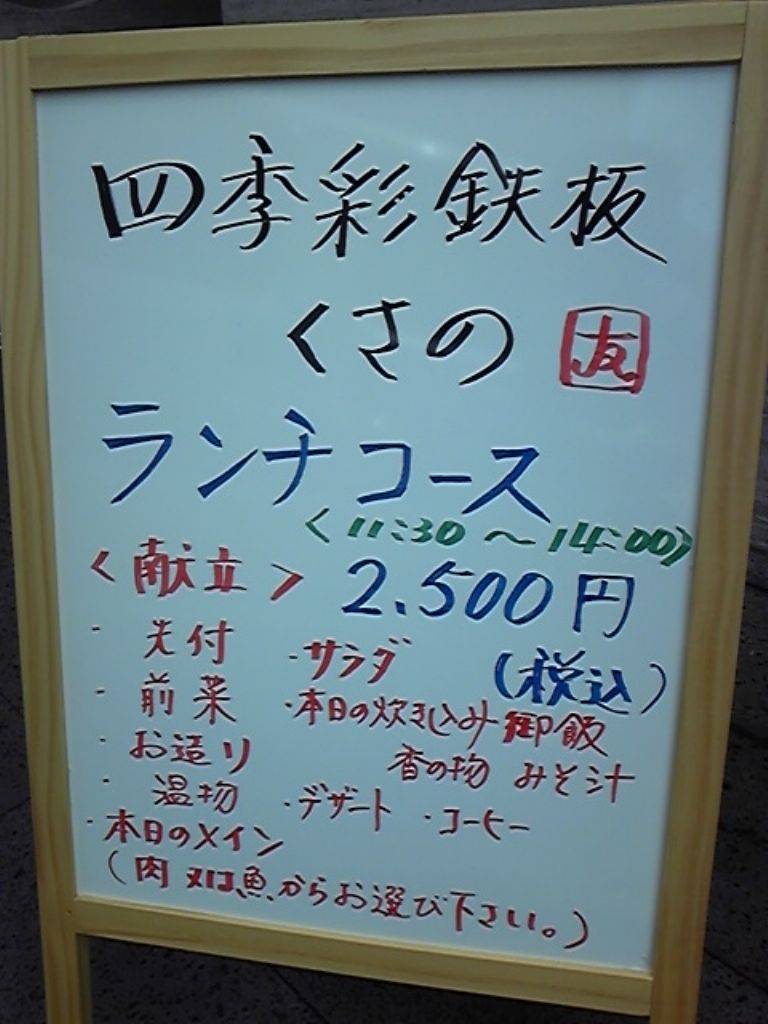 四季彩鉄板
くさの 友
ランチコース
<11:30～14:00>
<献立> 2.500円
(税込)
・先付
・前菜
・お造り
・温物
・本日のメイン
(肉又は魚からお選び下さい。)
・サラダ
・本日の炊き込み御飯
香の物 みそ汁
・デザート ・コーヒー